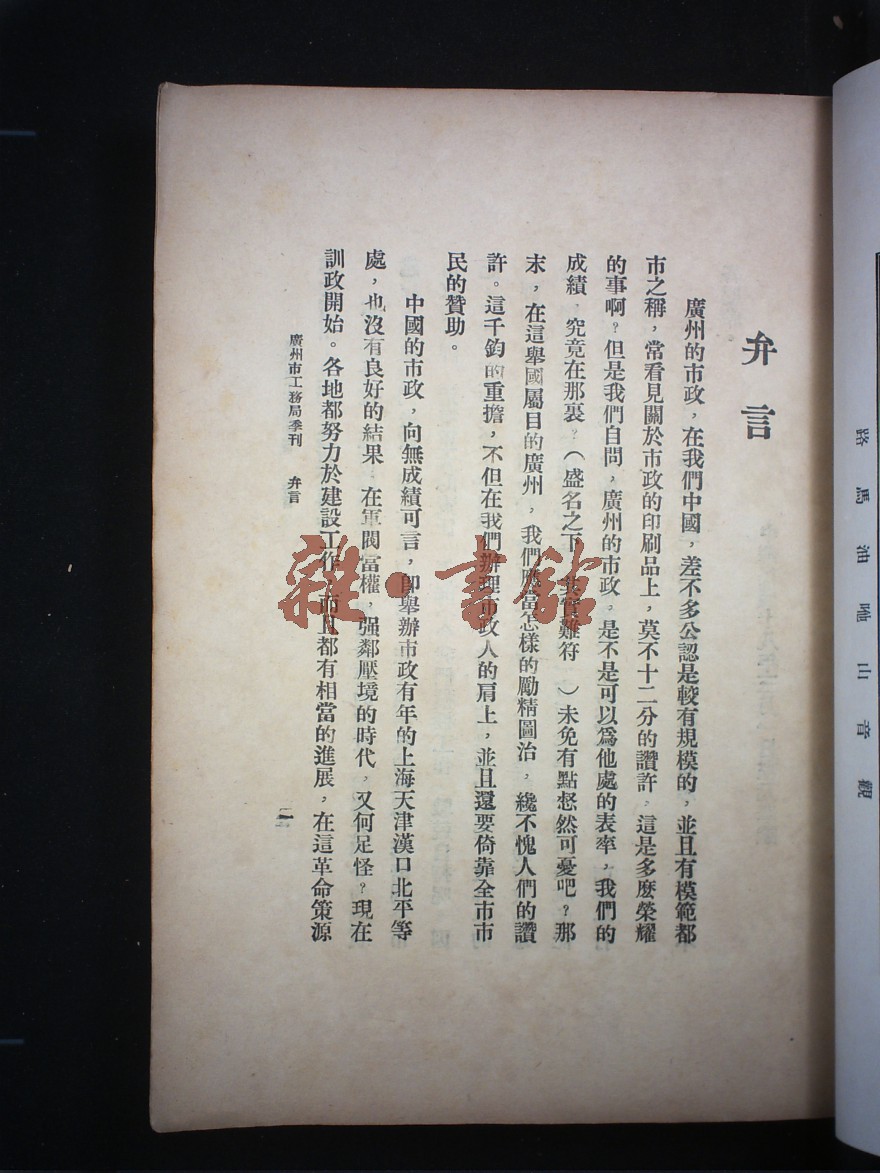 弁言
廣州的市政，在我們中國，差不多公認是較有規模的，並且有模範都
市之稱，常看見關於市政的印刷品上，莫不十二分的讚許，這是多麼榮耀
的事啊？但是我們自問，廣州的市政，是不是可以爲他處的表率，我們的
成績，究竟在那裏？（盛名之下　其實難符　）未免有點惄然可憂吧？那
末，在這舉國屬目的廣州，我們應當怎樣的勵精圖治，纔不愧人們的讚
許。這千鈞的重擔，不但在我們辦理市政人的肩上，並且還要倚靠全市市
民的贊助。
中國的市政，向無成績可言，卽舉辦市政有年的上海天津漢口北平等
處，也沒有良好的結果　在軍閥當權，强鄰壓境的時代，又何足怪？現在
訓政開始。各地都努力於建設工作，而且都有相當的進展，在這革命策源
廣州市工務局季刊　弁言
一
觀音山咃油馬路
雜·書館